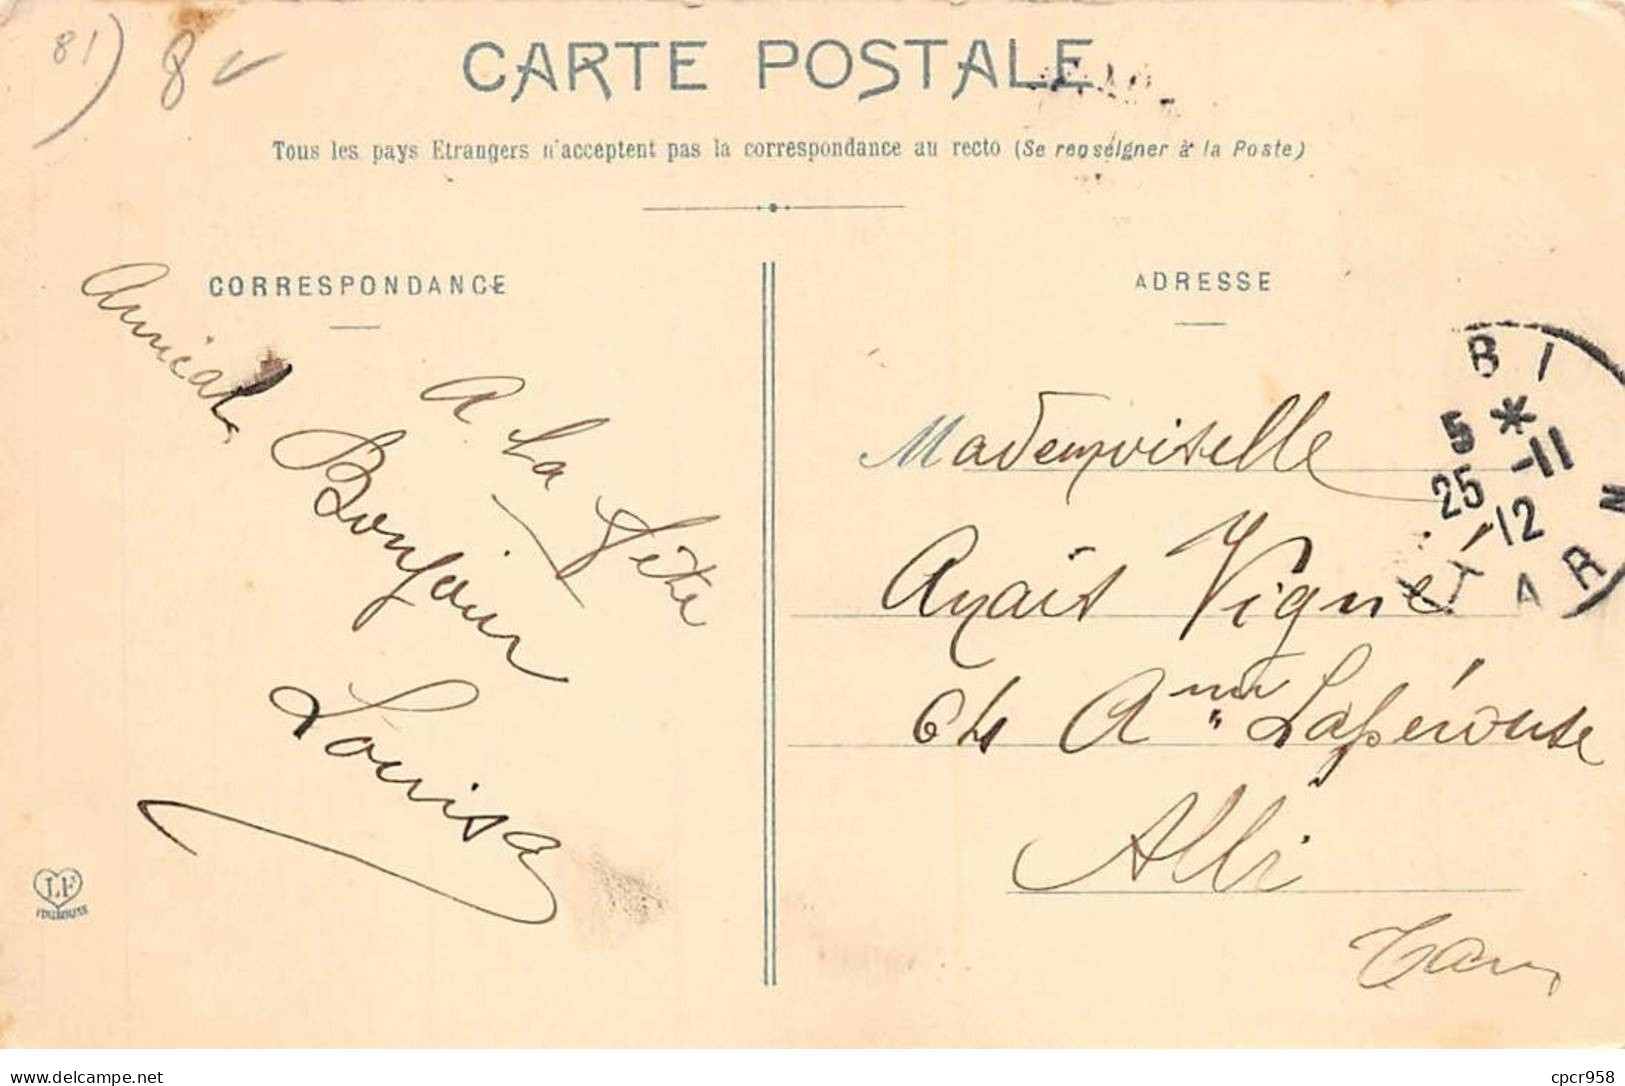 81) 8
CARTE POSTALE
Tous les pays Etrangers n'acceptent pas la correspondance au recto (Se renseigner à la Poste)
CORRESPONDANCE
Amical
Bonjour
A la fête
Louisa
LF
TOULOUSE
ADRESSE
Mademoiselle
Anaïs Vigné
64 Anue Lapérouse
Albi
Tarn
BI
5 *
25 -11
12
TARN
delcampe.net
cpcr958